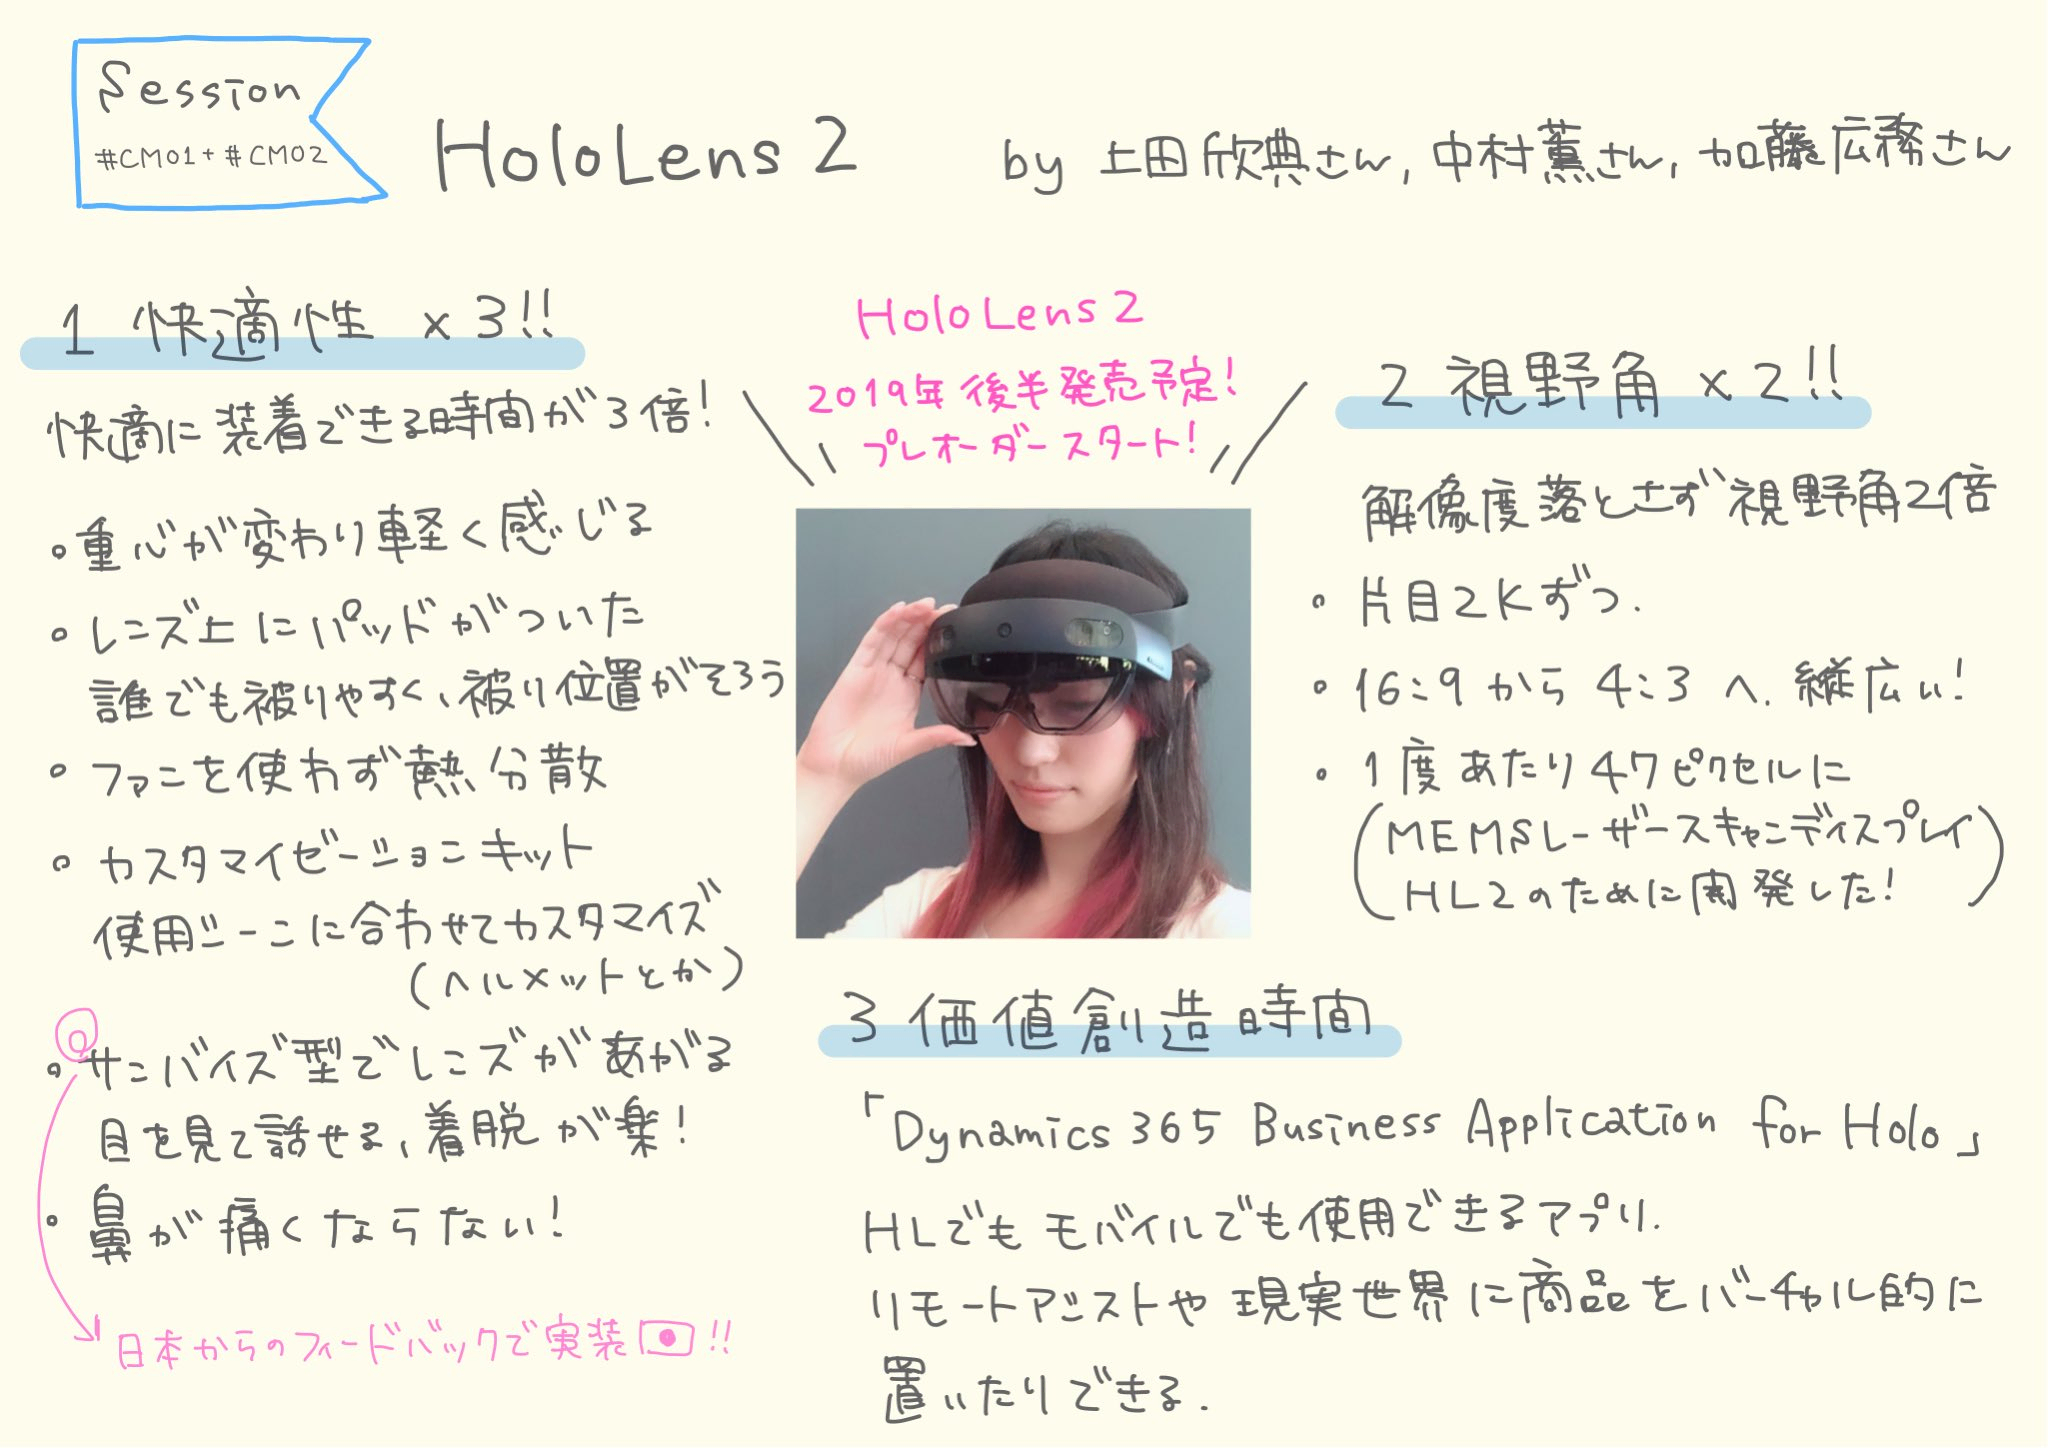 Session
#CM01+#CM02
HoloLens 2
by 上田欣典さん, 中村薫さん, 加藤広務さん
1 快適性 x 3!!
快適に装着できる時間が3倍!
・重心が変わり軽く感じる
・レンズ上にパッドがついた
誰でも被りやすく、被り位置がそろう
・ファンを使わず熱分散
・カスタマイゼーションキット
使用シーンに合わせてカスタマイズ
(ヘルメットとか)
・サンバイズ型でレンズがあがる
目を見て話せる、着脱が楽!
・鼻が痛くならない!
日本からのフィードバックで実装!!
HoloLens 2
2019年後半発売予定!
プレオーダースタート!
2 視野角 x 2!!
解像度落とさず視野角2倍
・片目2Kずつ.
・16:9から4:3へ.縦広い!
・1度あたり47ピクセルに
(MEMSレーザースキャンディスプレイ
HL2のために開発した!)
3 価値創造時間
「Dynamics 365 Business Application for Holo」
HLでもモバイルでも使用できるアプリ.
リモートアシストや現実世界に商品をバーチャル的に
置いたりできる.